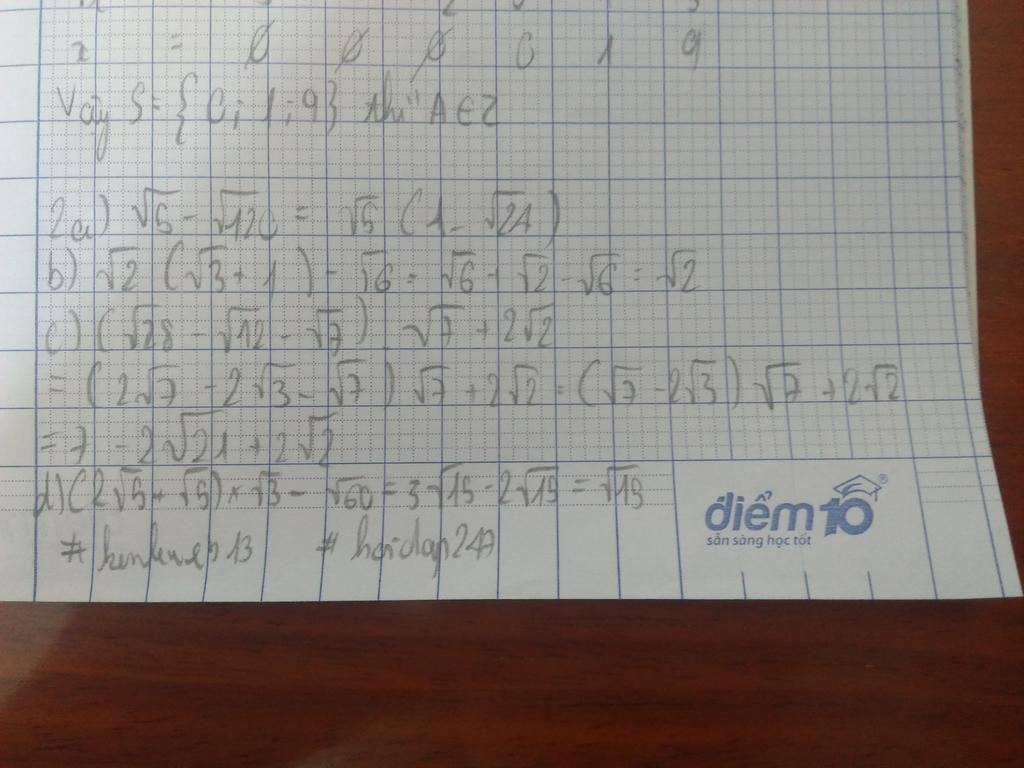 x = ∅ ∅ ∅ 0 1 9
Vậy S = {0; 1; 9} thì A ∈ Z
2a) √5 - √120 = √5 (1 - √24)
b) √2 (√3 + 1) - √6 = √6 + √2 - √6 = √2
c) (√28 - √12 - √7) √7 + 2√2
= (2√7 - 2√3 - √7) √7 + 2√2 = (√7 - 2√3) √7 + 2√2
= 7 - 2√21 + 2√2
d) (2√5 + √5) × √3 - √60 = 3√15 - 2√15 = √15
# hoidap247
điểm 10
sẵn sàng học tốt